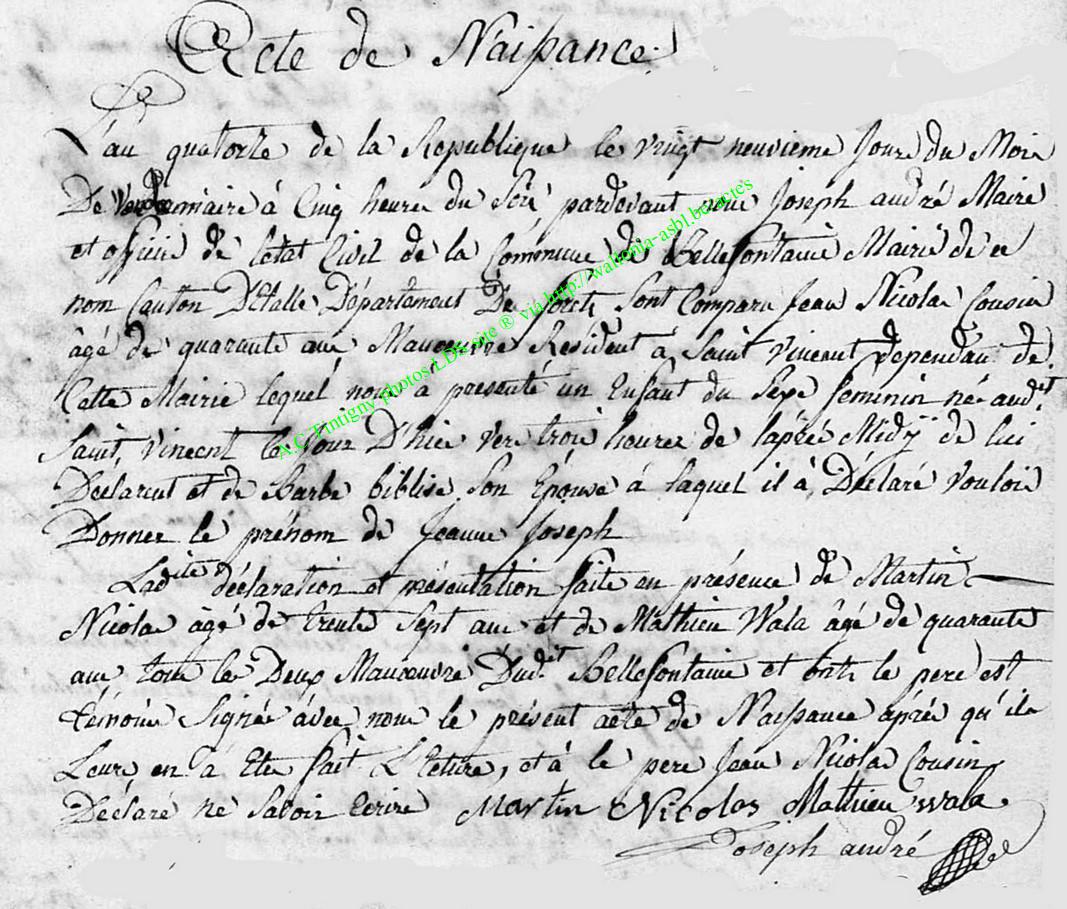 Acte de Naissance
L'an quatorze de la Republique le vingt neuvieme Jour du Mois
De Vendemiaire à Cinq heures du Soir pardevant nous Joseph andré Maire
et officier de letat Civil de la Commune de Bellefontaine Mairie de ce
nom Canton D'Etalle Département De forets Sont Comparu Jean Nicolas Cousin
âgé de quarante ans Manoeuvre Resident a Saint Vincent dependan de
Cette Mairie lequel nous a presenté un Enfant du Sexe feminin né audit
Saint, Vincent le Jour D'hier vers trois heures de laprés Midy de lui
Declarent et de Barbe biblise Son Epouse à laquel il à Déclaré Vouloir
Donner le prénom de Jeanne Joseph
Ladite déclaration et présentation faite en présence de Martin
Nicolas âgé de trente Sept ans et de Mathieu Wala âgé de quarante
ans tous les Deux Manoeuvre Dudit Bellefontaine et onts le pere est
témoins Signés avec nous le présent acte de Naissance aprés qu'ils
Leurs en à Eté fait L'Ecture, et à le pere Jean Nicolas Cousin
Déclaré ne Savoir Ecrire Martin Nicolas Mathieu wala
Joseph andré
A.C. Tintigny photos LDS site ® via http://wallonia-asbl.be/actes